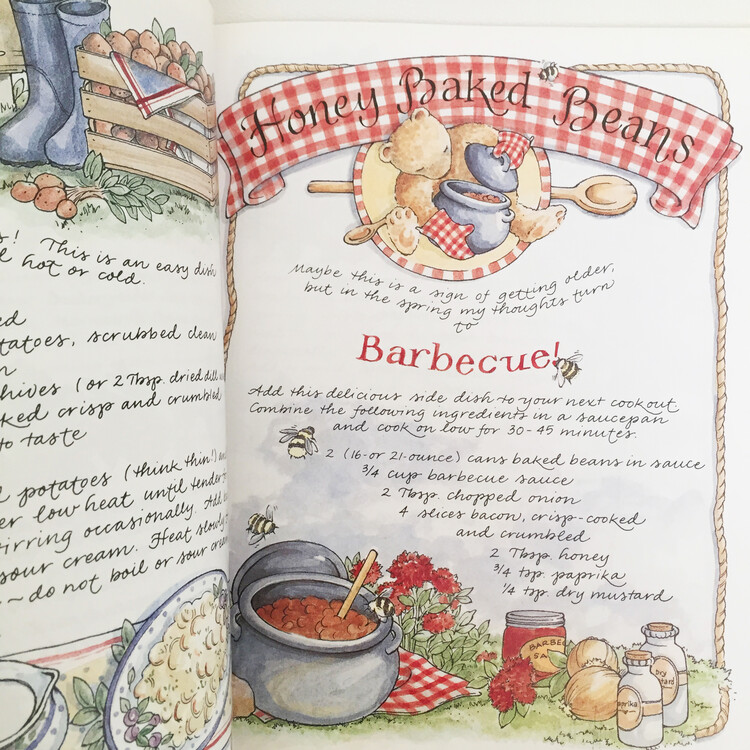 ! This is an easy dish
hot or cold.
tatoes, scrubbed clean
hives (or 2 Tbsp. dried dill
ked crisp and crumbled
to taste
potatoes (think thin!)
er low heat until tender
irring occasionally. Add
sour cream. Heat slowly
~ do not boil or sour cream
Honey Baked Beans
Maybe this is a sign of getting older,
but in the spring my thoughts turn
to
Barbecue!
Add this delicious side dish to your next cookout.
Combine the following ingredients in a saucepan
and cook on low for 30-45 minutes.
2 (16- or 21-ounce) cans baked beans in sauce
3/4 cup barbecue sauce
2 Tbsp. chopped onion
4 slices bacon, crisp-cooked
and crumbled
2 Tbsp. honey
3/4 tsp. paprika
1/4 tsp. dry mustard
BARBEC
SA
Dry
ustard
aprika